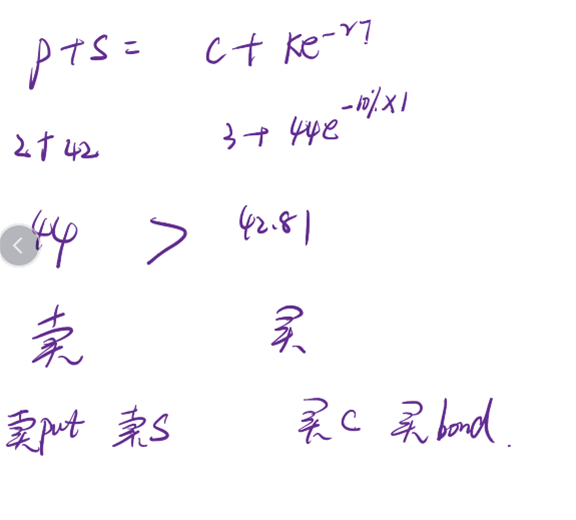 p+s = c + Ke^-rT
2+42 3+ 44e^-10%×1
44 > 42.81
卖 买
卖put 卖S 买C 买bond.